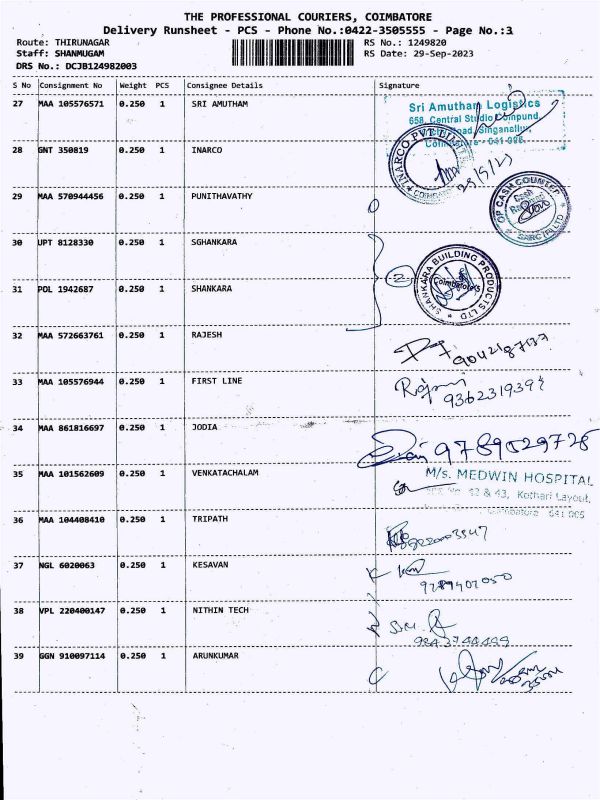 THE PROFESSIONAL COURIERS, COIMBATORE
Delivery Runsheet - PCS - Phone No.:0422-3505555 - Page No.:3
Route: THIRUNAGAR
RS No.: 1249820
Staff: SHANMUGAM
RS Date: 29-Sep-2023
DRS No.: DCJB124982003
S No Consignment No Weight PCS Consignee Details Signature
27 MAA 105576571 0.250 1 SRI AMUTHAM
Sri Amutham Logistics
658, Central Studio Compund,
Singanallur,
Coimbatore - 641 005.
28 GNT 350819 0.250 1 INARCO
INARCO PVT LTD
COIMBATORE
29/9/23
29 MAA 570944456 0.250 1 PUNITHAVATHY
OP CASH COUNTER
Cash
Received
SARC (P) LTD
30 UPT 8128330 0.250 1 SGHANKARA
2
SHANKARA BUILDING PRODUCTS LTD
Coimbatore
31 POL 1942687 0.250 1 SHANKARA
32 MAA 572663761 0.250 1 RAJESH
33 MAA 105576944 0.250 1 FIRST LINE
34 MAA 861816697 0.250 1 JODIA
9789529728
35 MAA 101562609 0.250 1 VENKATACHALAM
M/s. MEDWIN HOSPITAL
42 & 43, Kothari Layout,
Coimbatore 641 005
36 MAA 104408410 0.250 1 TRIPATH
37 NGL 6020063 0.250 1 KESAVAN
38 VPL 220400147 0.250 1 NITHIN TECH
39 GGN 910097114 0.250 1 ARUNKUMAR